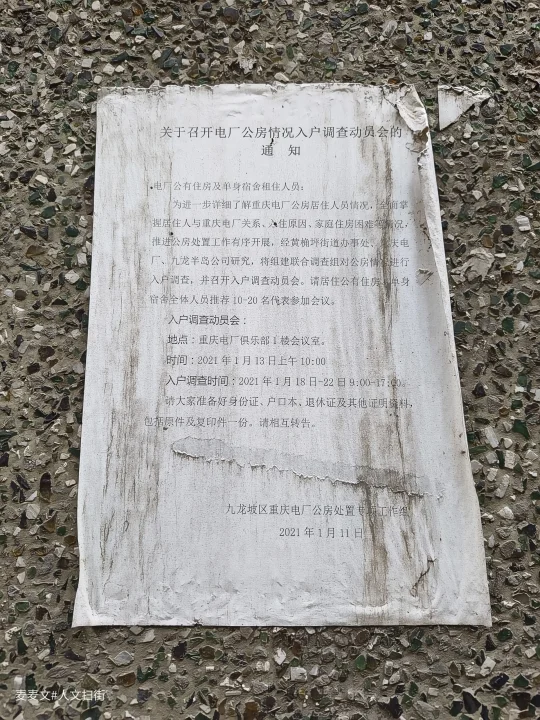 关于召开电厂公房情况入户调查动员会的
通 知
电厂公有住房及单身宿舍租住人员:
为进一步详细了解重庆电厂公房居住人员情况,全面掌
握居住人与重庆电厂关系、入住原因、家庭住房困难等情况,
推进公房处置工作有序开展,经黄桷坪街道办事处、重庆电
厂、九龙半岛公司研究,将组建联合调查组对公房情况进行
入户调查,并召开入户调查动员会。请居住公有住房、单身
宿舍全体人员推荐10-20名代表参加会议。
入户调查动员会:
地点:重庆电厂俱乐部1楼会议室。
时间:2021年1月13日上午10:00
入户调查时间:2021年1月18日-22日9:00-17:00。
请大家准备好身份证、户口本、退休证及其他证明资料,
包括原件及复印件一份。请相互转告。
九龙坡区重庆电厂公房处置 工作组
2021年1月11日
麦麦文#人文扫街